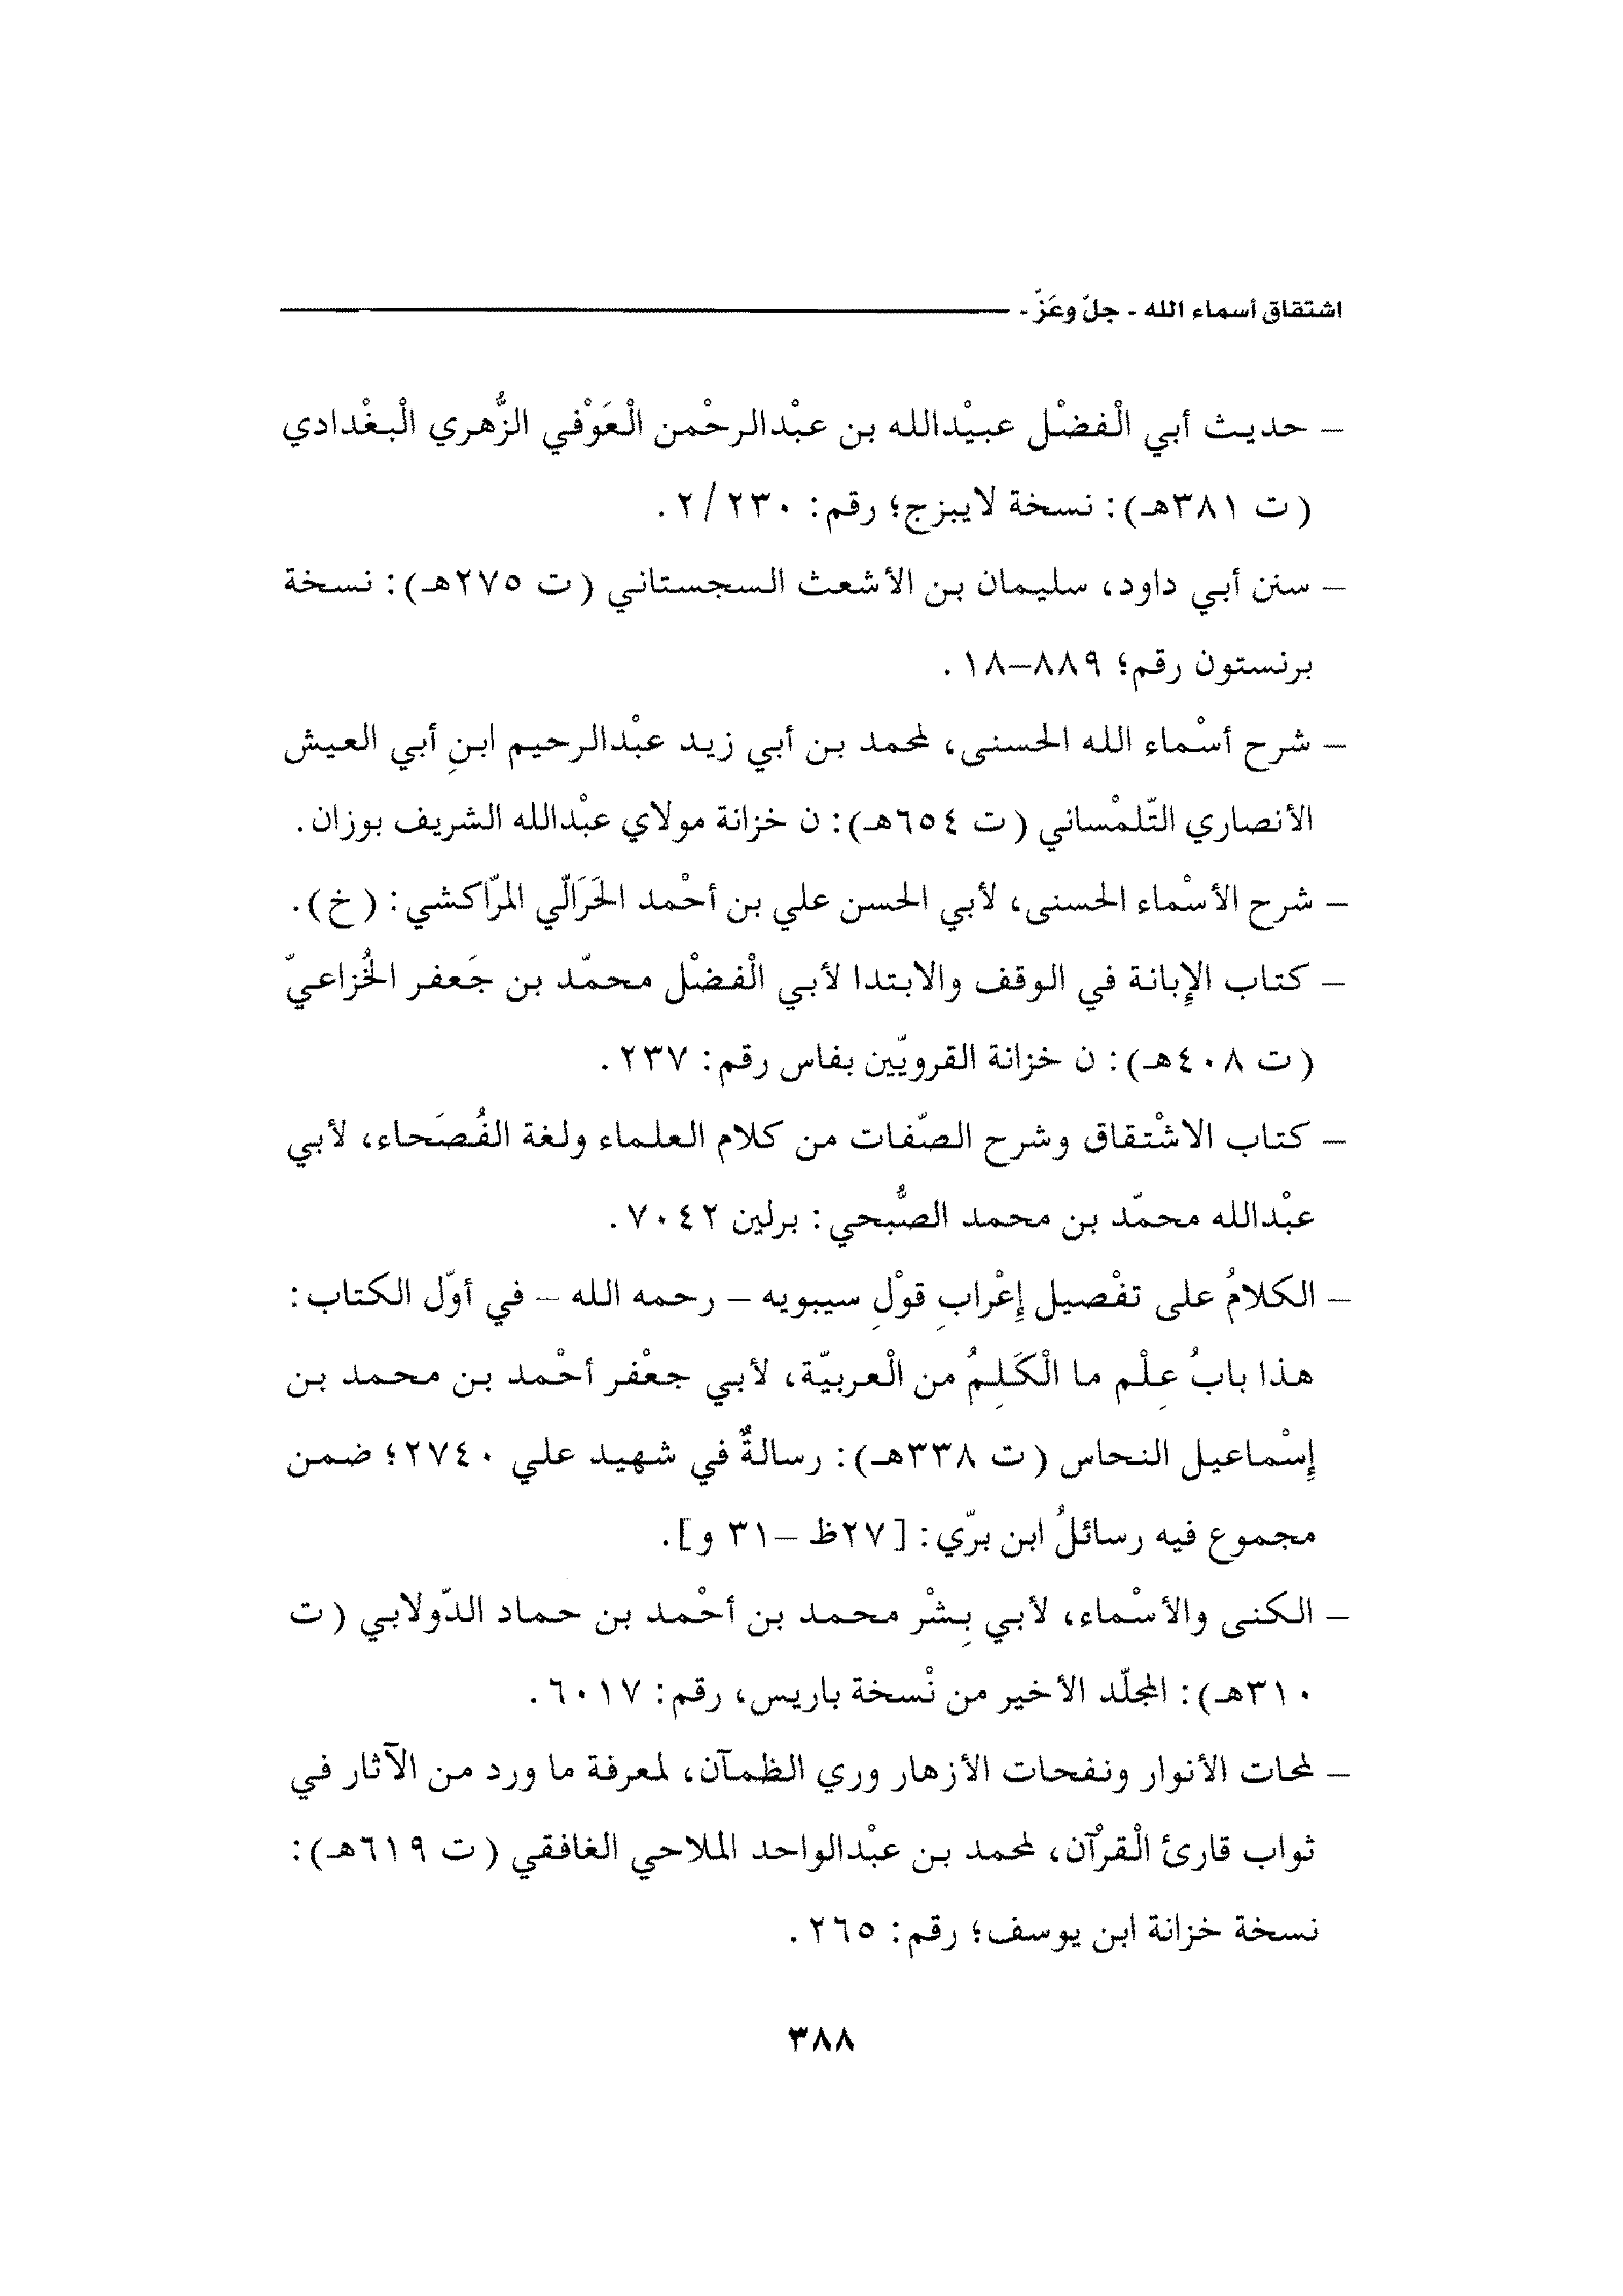 اشتقاق أسماء الله - جلّ وعَزّ -
– حديث أبي الْفضْل عبيْدالله بن عبْدالرحْمن الْعَوْفي الزُّهري الْبغْدادي
(ت ٣٨١هـ): نسخة لايبزج؛ رقم: ٢٣٠/٢.
– سنن أبي داود، سليمان بن الأشعث السجستاني (ت ٢٧٥هـ): نسخة
برنستون رقم؛ ٨٨٩–١٨.
– شرح أسْماء الله الحسنى، لمحمد بن أبي زيد عبْدالرحيم ابنِ أبي العيش
الأنصاري التّلمْساني (ت ٦٥٤هـ): ن خزانة مولاي عبْدالله الشريف بوزان.
– شرح الأسْماء الحسنى، لأبي الحسن علي بن أحْمد الحَرَالّي المرّاكشي: (خ).
– كتاب الإبانة في الوقف والابتدا لأبي الْفضْل محمّد بن جَعفر الخُزاعيّ
(ت ٤٠٨هـ): ن خزانة القرويّين بفاس رقم: ٢٣٧.
– كتاب الاشْتقاق وشرح الصّفات من كلام العلماء ولغة الفُصَحاء، لأبي
عبْدالله محمّد بن محمد الصُّبحي: برلين ٧٠٤٢.
– الكلامُ على تفْصيل إِعْرابِ قوْلِ سيبويه – رحمه الله – في أوّل الكتاب:
هذا بابُ عِلْم ما الْكَلِمُ من الْعربيّة، لأبي جعْفر أحْمد بن محمد بن
إِسْماعيل النحاس (ت ٣٣٨هـ): رسالةٌ في شهيد علي ٢٧٤٠؛ ضمن
مجموع فيه رسائلُ ابن برّي: [٢٧ظ –٣١ و].
– الكنى والأسْماء، لأبي بِشْر محمد بن أحْمد بن حماد الدّولابي (ت
٣١٠هـ): المجلّد الأخير من نْسخة باريس، رقم: ٦٠١٧.
– لمحات الأنوار ونفحات الأزهار وري الظمآن، لمعرفة ما ورد من الآثار في
ثواب قارئ الْقرْآن، لمحمد بن عبْدالواحد الملاحي الغافقي (ت ٦١٩هـ):
نسخة خزانة ابن يوسف؛ رقم: ٢٦٥.
٣٨٨